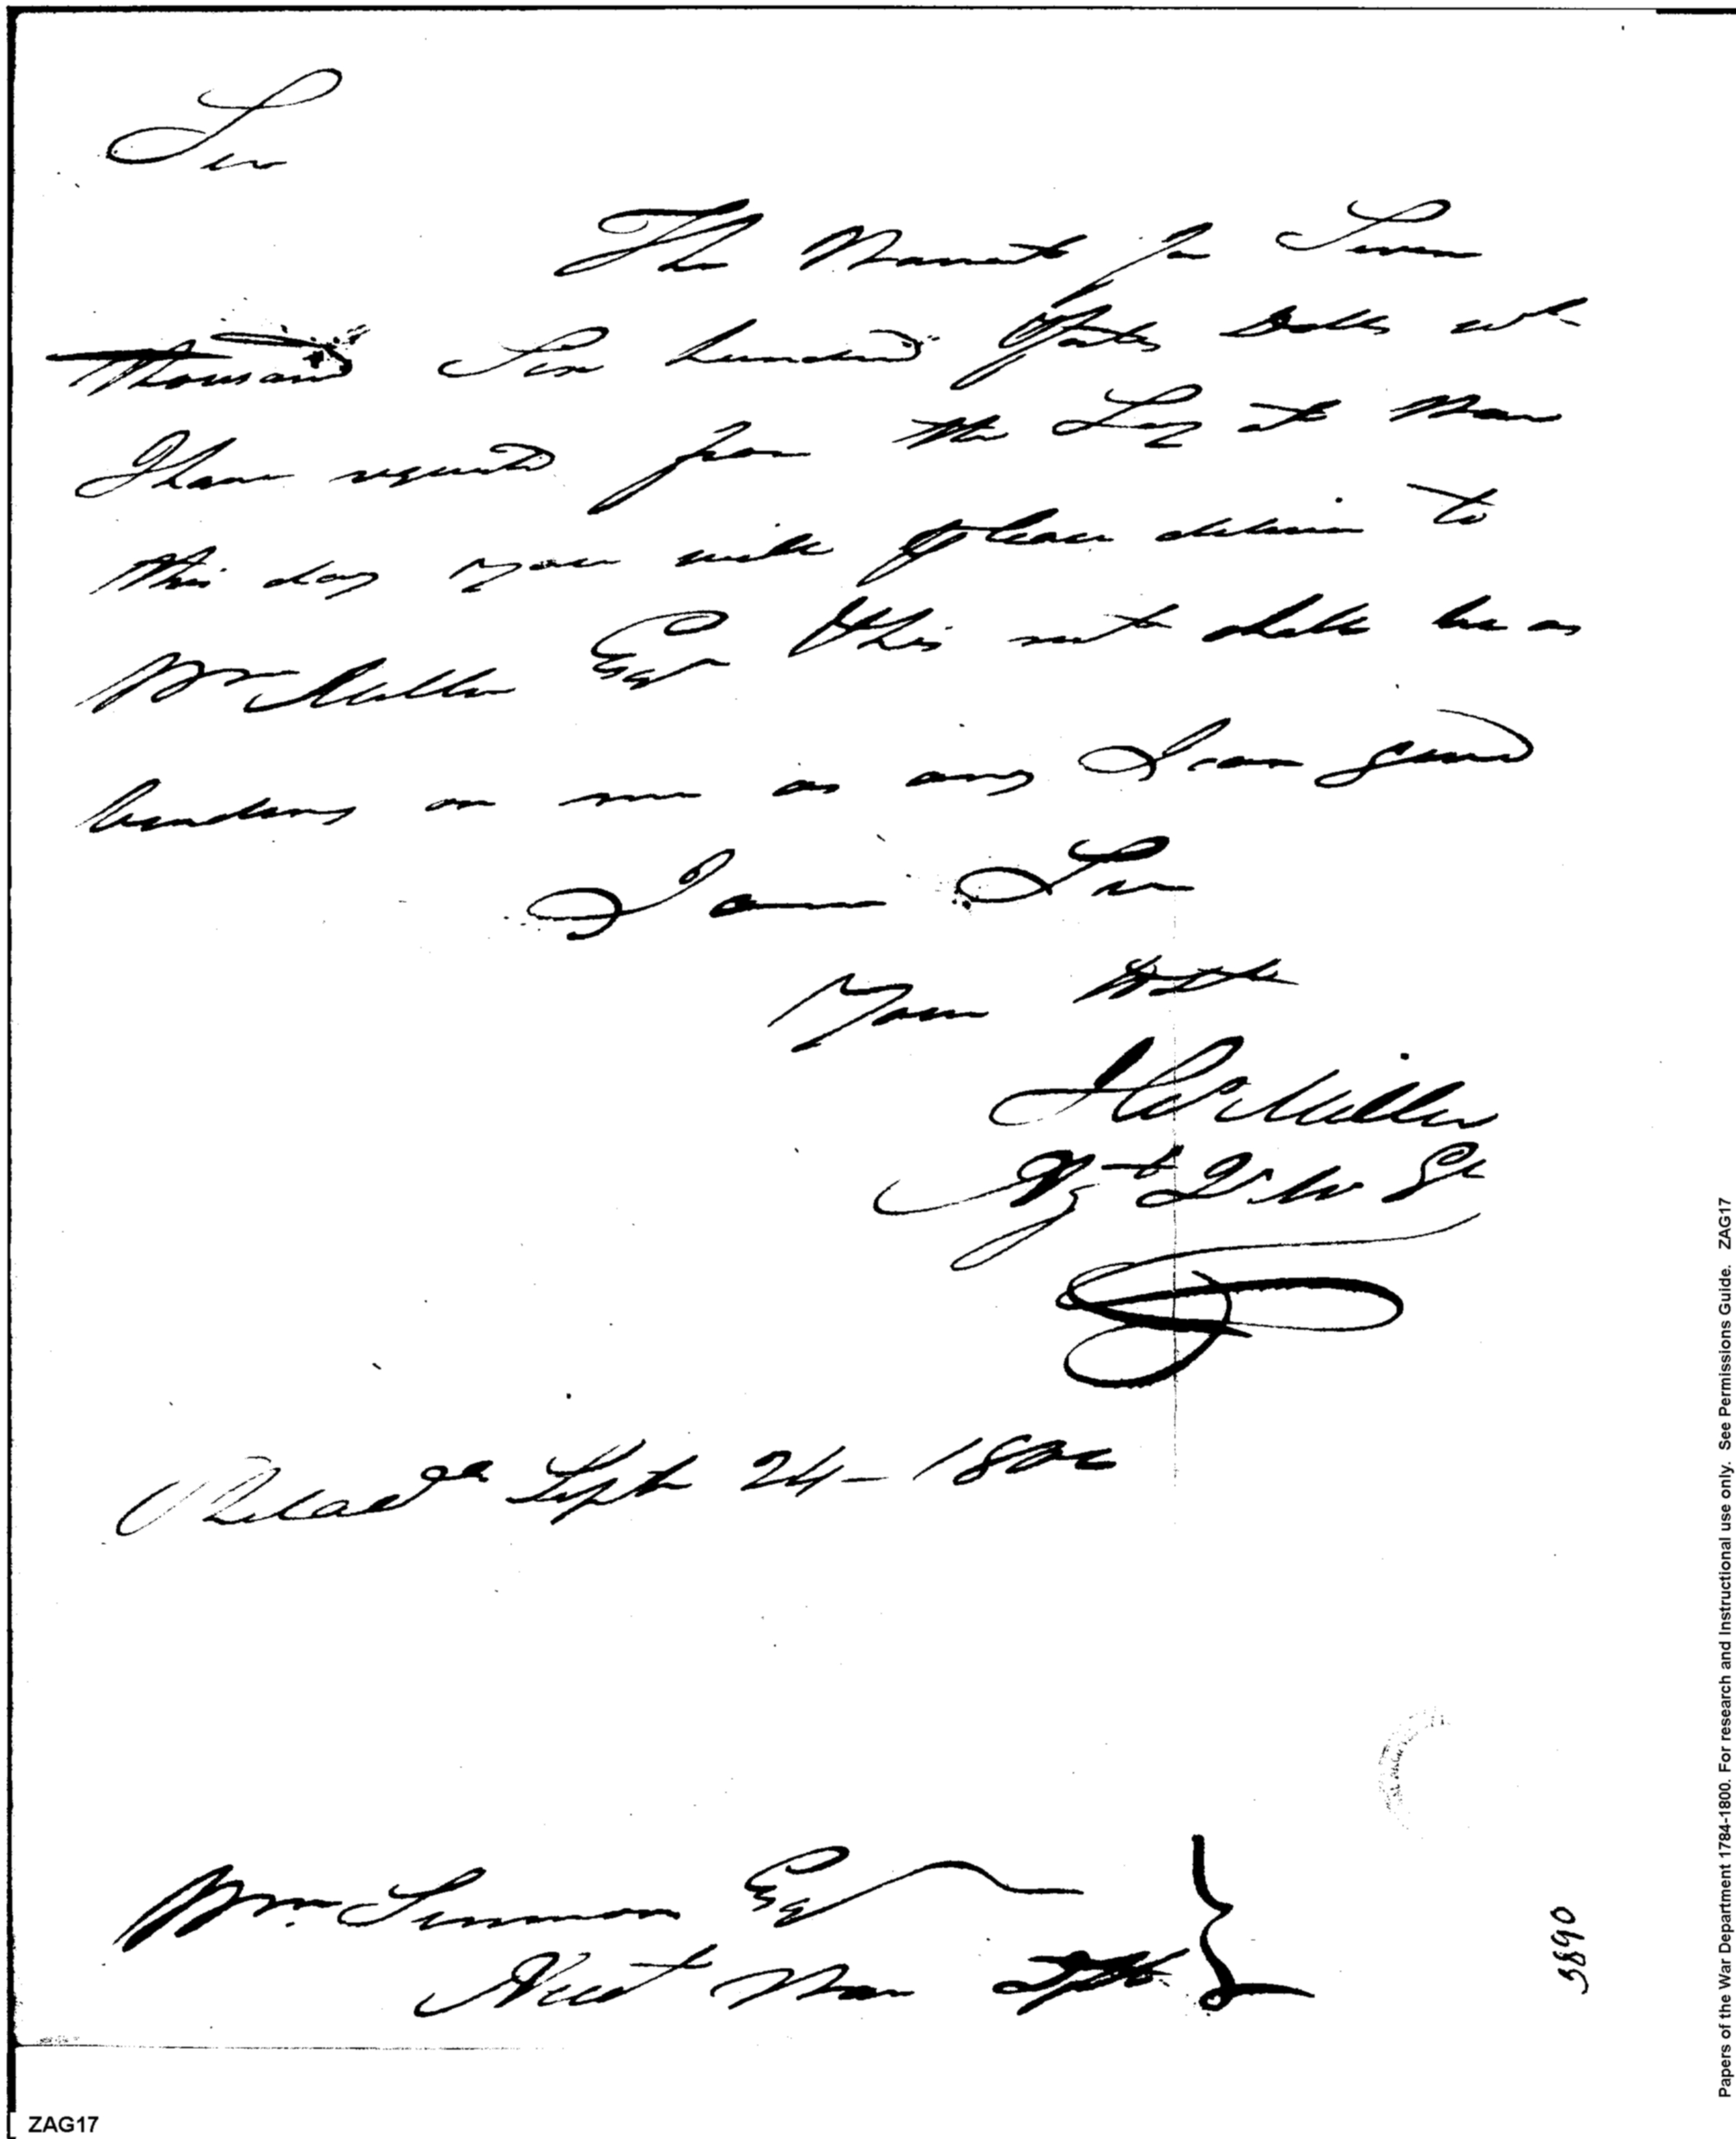 Sir
The Warrant for Seven
Thousand Six hundred & forty Dolls wh
I have requested from the Secy at War
this day you will please deliver to
Wm Miller Esqr this not dells be as
on me as any I can send
I am Sir
Your
Miller
Agt
Philada Sept 24 - 1800
Wm. Simmons Esq
Acct War Dept
3890
ZAG17
Papers of the War Department 1784-1800. For research and Instructional use only. See Permissions Guide. ZAG17